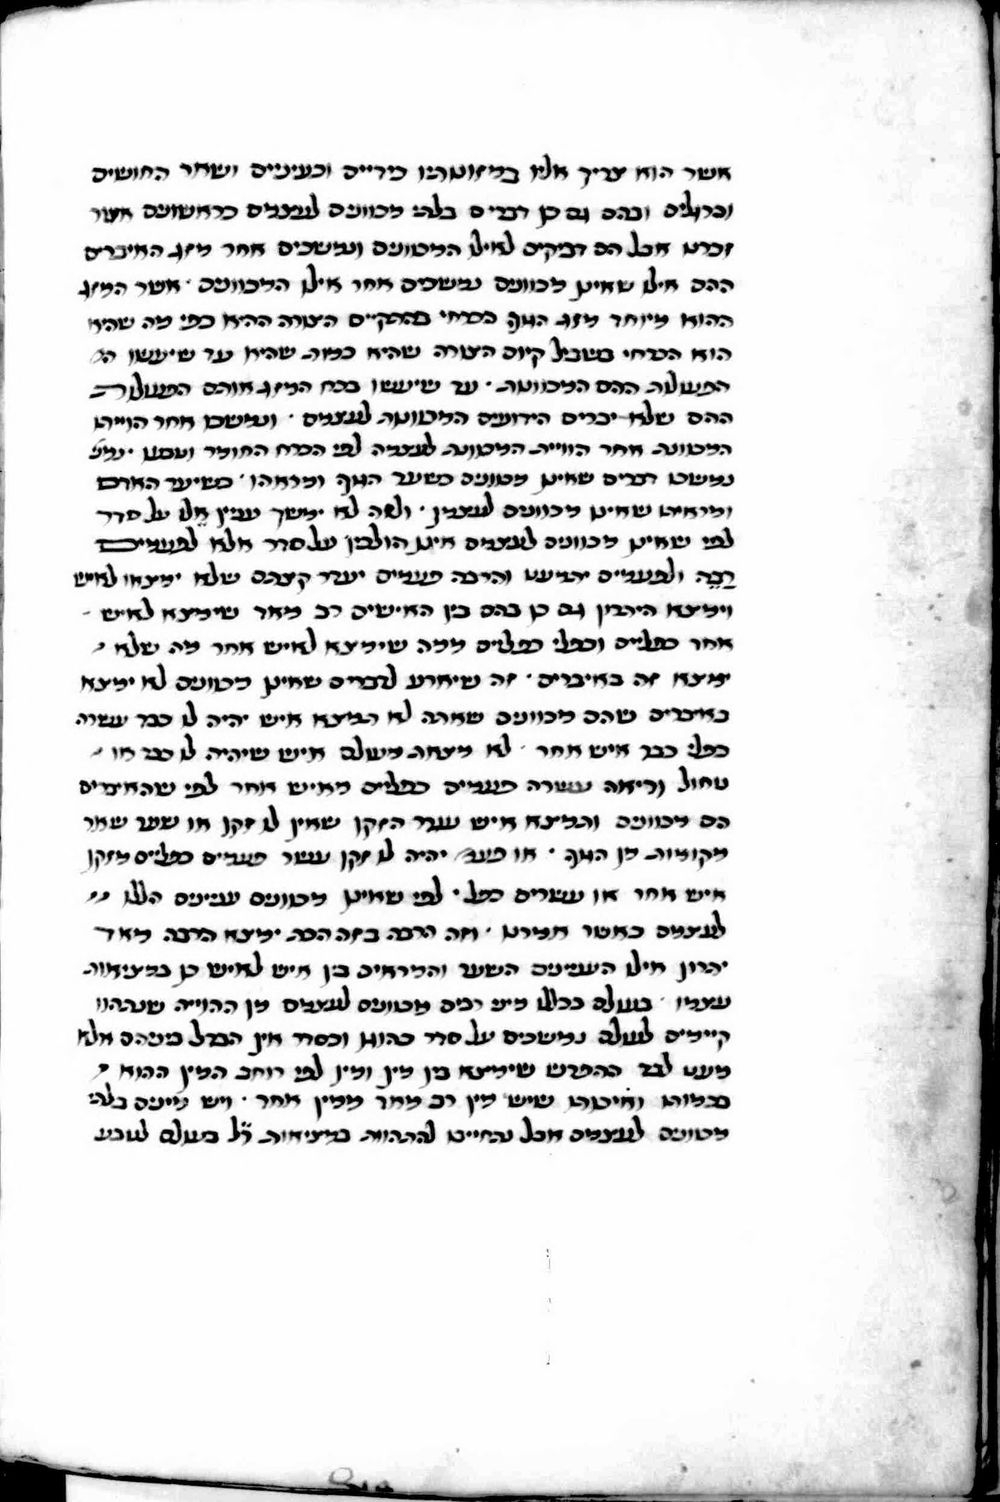 אשר הוא צריך אליו במזונותיו כידיים וכעיניים ושאר החושים
וכרגלים ובהם גם כן דברים בלתי מכוונים לעצמם בראשונים אשר
זכרנו אבל הם דביקים לאילו המכוונים ונמשכים אחר מזג האיברים
ההם אילו שאינן מכוונים נמשכים אחר אילו המכוונים · אשר המזג
ההוא מיוחד מזג הגוף הכרחי בהתקיים הצורה ההיא כפי מה שהיא
הוא הכרחי בשביל קיום הצורה שהיא כמות שהיא עד שיעשו ה
הפעולות ההם המכוונות · עד שיעשו בכח המזג אותם הפעולות
ההם שלא יברים הידועים המכוונות לעצמם · ונמשכו אחר הוייתו
המכוונת אחר הווייה המכוונת לעצמה לפי הכרח החומר וטבעו · נמצ
נמשכו דברים שאינן מכוונים כשער הגוף ומראהו · כשיער האדם
ומראיתו שאינן מכוונים לעצמן · ולזה לא ימשך ענין אלו על סדר
לפי שאינן מכוונים לעצמם אינן הולכין על סדר אלא לפעמים
רבה ולפעמים יתמעט והרבה פעמים יעדר קצתם שלא ימצאו לאיש
וימצא היתרון גם כן בהם בין האישים רב מאד שימצא לאיש
אחד כפלים וכפלי כפלים ממה שימצא לאיש אחר מה שלא
ימצא זה באיברים · זה שיארע לדברים שאינן מכוונים לא ימצא
באיברים שהם מכוונים שאתה לא תמצא איש יהיה לו כבד עשרה
כפלי כבד איש אחר · לא מצאת מעולם איש שיהיה לו כבד או
טחול וריאה עשרה פעמים כפלים מאיש אחר לפי שהאיברים
הם מכוונים ותמצא איש נעדר הזקן שאין לו זקן או שער שאר
מקומות מן הגוף · או פעמ יהיה לו זקן עשר פעמים כפלים מזקן
איש אחר או עשרים כפל · לפי שאינן מכוונים ענינים הללו
לעצמם כאשר אמרנו · וזה הרבה בזה הכת ימצא הרבה מאד
יתרון אילו הענינים השער והמראים בין איש לאיש כן במציאות
עצמו · בעולם בכללו מיני רבים מכוונים לעצמם מן ההוייה שנתהוו
קיימים לעולם נמשכים על סדר כהוגן וכסדר אין הבדל ביניהם אלא
מעט לבד ההפרש שימצא בין מין ומין לפי רוחב המין ההוא
בכמותו ואיכותו שיש מין רב מאד ממין אחר · ויש מינים בלתי
מכוונים לעצמם אבל נתחייבו להתהוות במציאות ר״ל בעולם לטבע